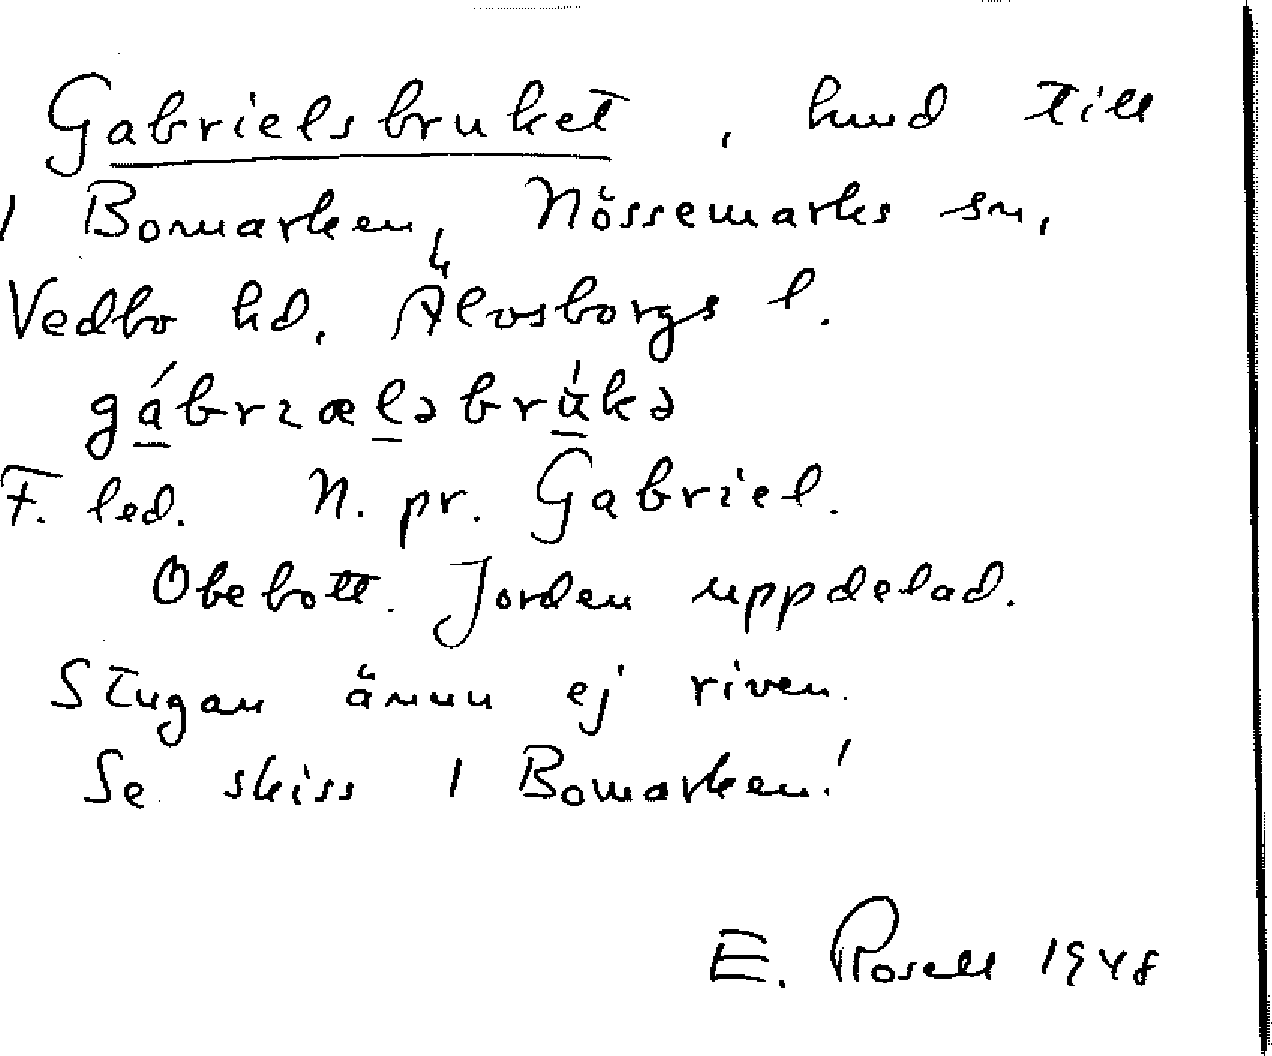 Gabrielsbruket, hmd till
1 Bomarken, Nössemarks sn,
Vedbo hd, Älvsborgs l.
gábrɪælsbrúkə
F. led. N. pr. Gabriel.
Obebott. Jorden uppdelad.
Stugan ännu ej riven.
Se skiss 1 Bomarken!
E. Rosell 1948